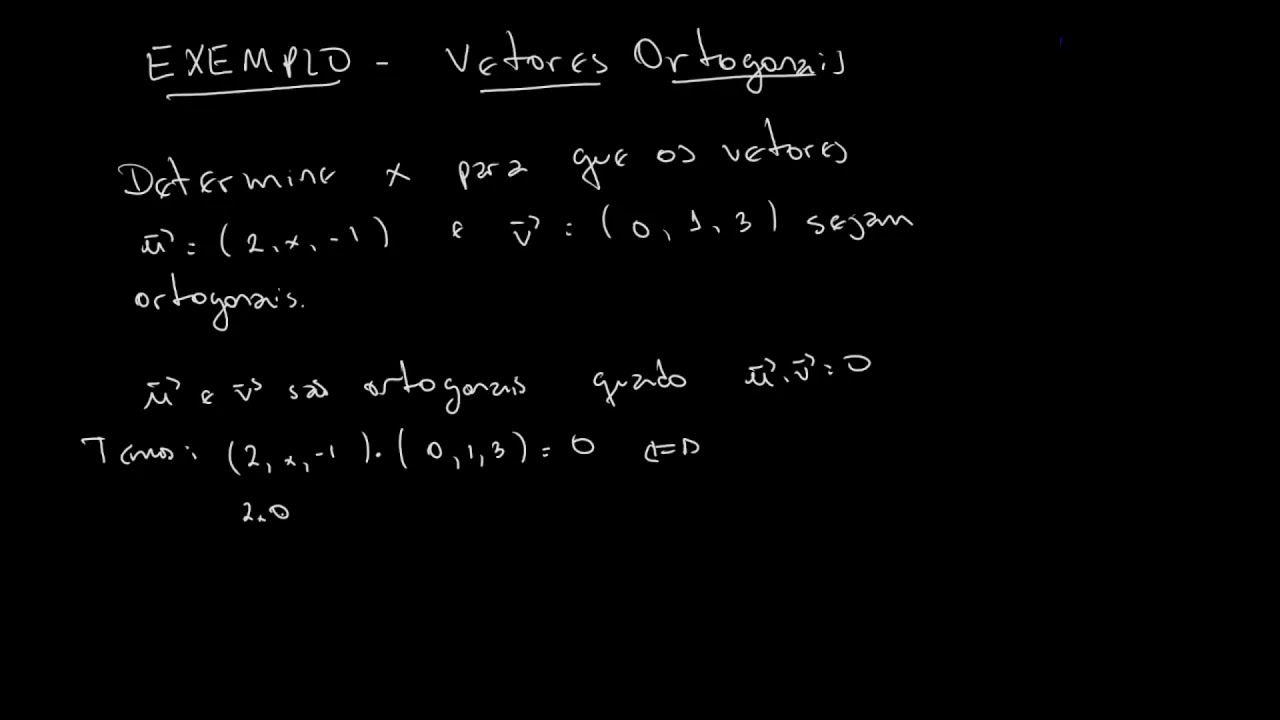 EXEMPLO - Vetores Ortogonais
Determine x para que os vetores
u⃗ = (2, x, -1) e v⃗ = (0, 1, 3) sejam
ortogonais.
u⃗ e v⃗ são ortogonais quado u⃗ . v⃗ = 0
Temos: (2, x, -1) . (0, 1, 3) = 0 ⇔
2.0